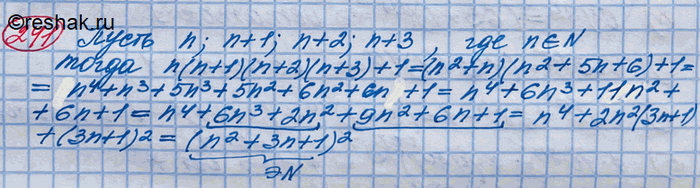 ©reshak.ru
291 Пусть n; n+1; n+2; n+3, где n∈N
тогда n(n+1)(n+2)(n+3)+1=(n²+n)(n²+5n+6)+1=
= n⁴+n³+5n³+5n²+6n²+6n +1= n⁴+6n³+11n²+
+6n+1= n⁴+6n³+2n²+9n²+6n+1= n⁴+2n²(3n+1)
+(3n+1)²= (n²+3n+1)²
∋N